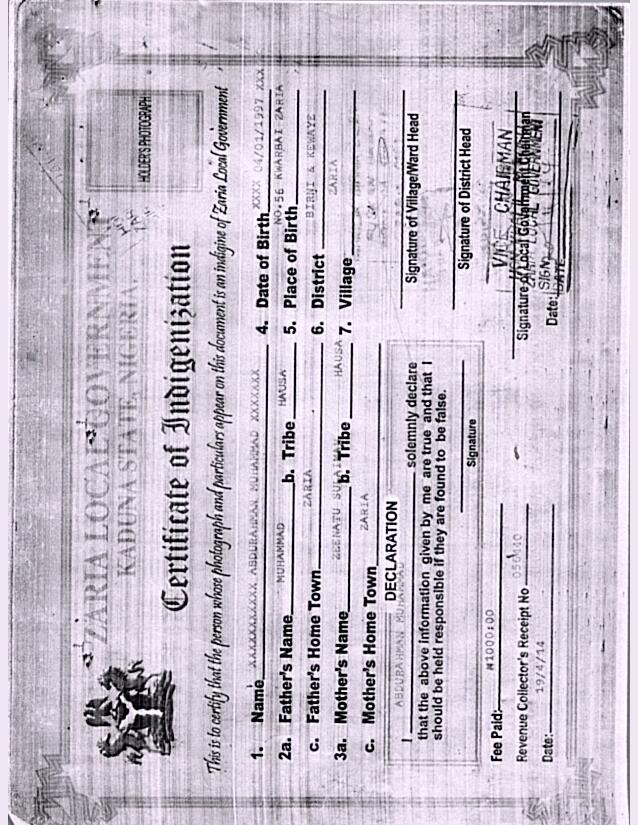 ZARIA LOCAL GOVERNMENT
KADUNA STATE, NIGERIA.
HOLDER'S PHOTOGRAPH
Certificate of Indigenization
This is to certify that the person whose photograph and particulars appear on this document is an indigine of Zaria Local Government
1. Name XXXXXXXXXXXX ABDURAHMAN MUHAMMAD XXXXXXX
4. Date of Birth XXXX 04/01/1997 XXX
2a. Father's Name MUHAMMAD b. Tribe HAUSA
5. Place of Birth NO.56 KWARBAI ZARIA
c. Father's Home Town ZARIA
6. District BIRNI & KEWAYE
3a. Mother's Name ZEENATU SULAIMAN b. Tribe HAUSA
7. Village ZARIA
c. Mother's Home Town ZARIA
DECLARATION
I ABDURAHMAN MUHAMMAD solemnly declare
that the above information given by me are true and that I
should be held responsible if they are found to be false.
Signature
Signature of Village/Ward Head
Signature of District Head
Fee Paid: ₦1000:00
Revenue Collector's Receipt No
Date: 19/4/14
VICE CHAIRMAN
Signature of Local Government Chairman
LOCAL GOVERNMENT
SIGN
Date:
DATE